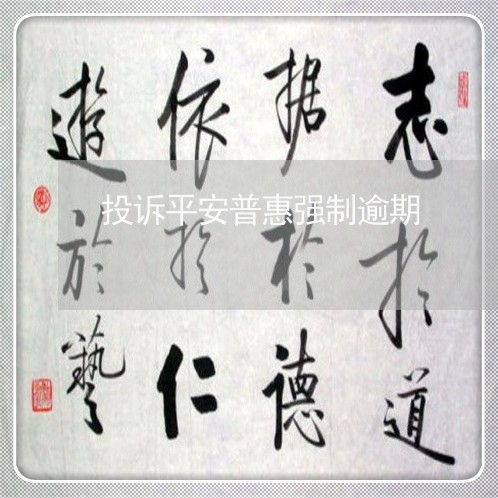 志於道
据於德
依於仁
遊於藝
投诉平安普惠强制逾期